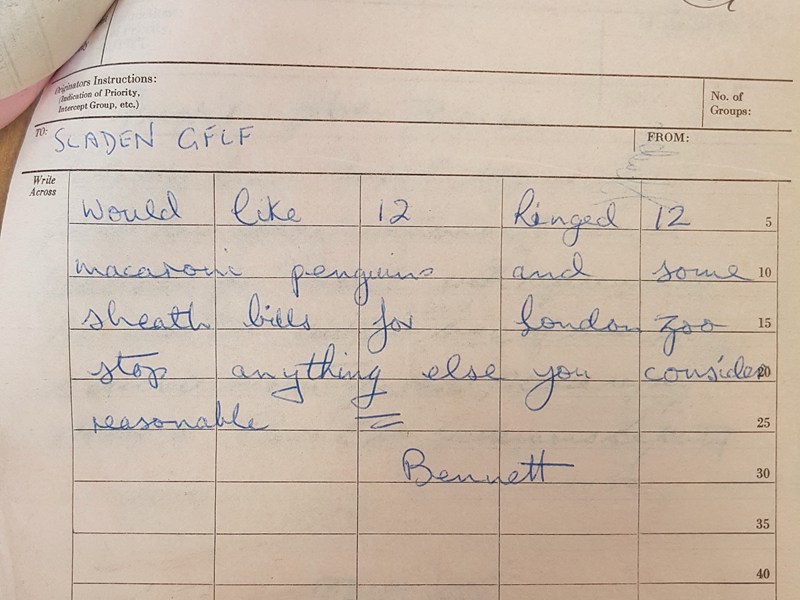 Originators Instructions:
(Indication of Priority,
Intercept Group, etc.)
No. of
Groups:
TO: SLADEN GFLF
FROM:
Write
Across
Would like 12 Ringed 12 5
macaroni penguins and some 10
sheath bills for London Zoo 15
stop anything else you consider 20
reasonable = 25
Bennett 30
35
40